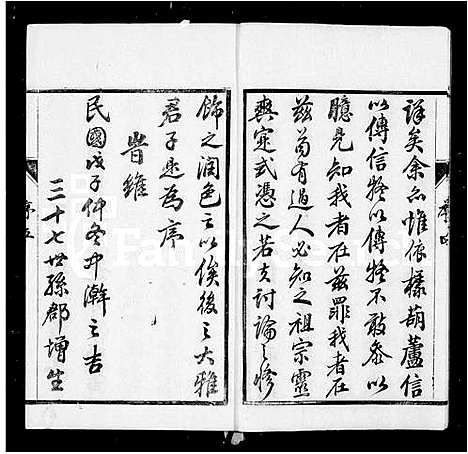 詳矣余亦惟依樣葫蘆信
以傳信疑以傳疑不敢参以
臆見知我者在兹罪我者在
兹苟有過人必知之祖宗靈
爽寔式憑之若夫討論之修
飾之潤色之以俟後之大雅
君子是為序
峕維
民國戊子仲冬中澣之吉
三十七世孫郡增生
序五
FamilySearch